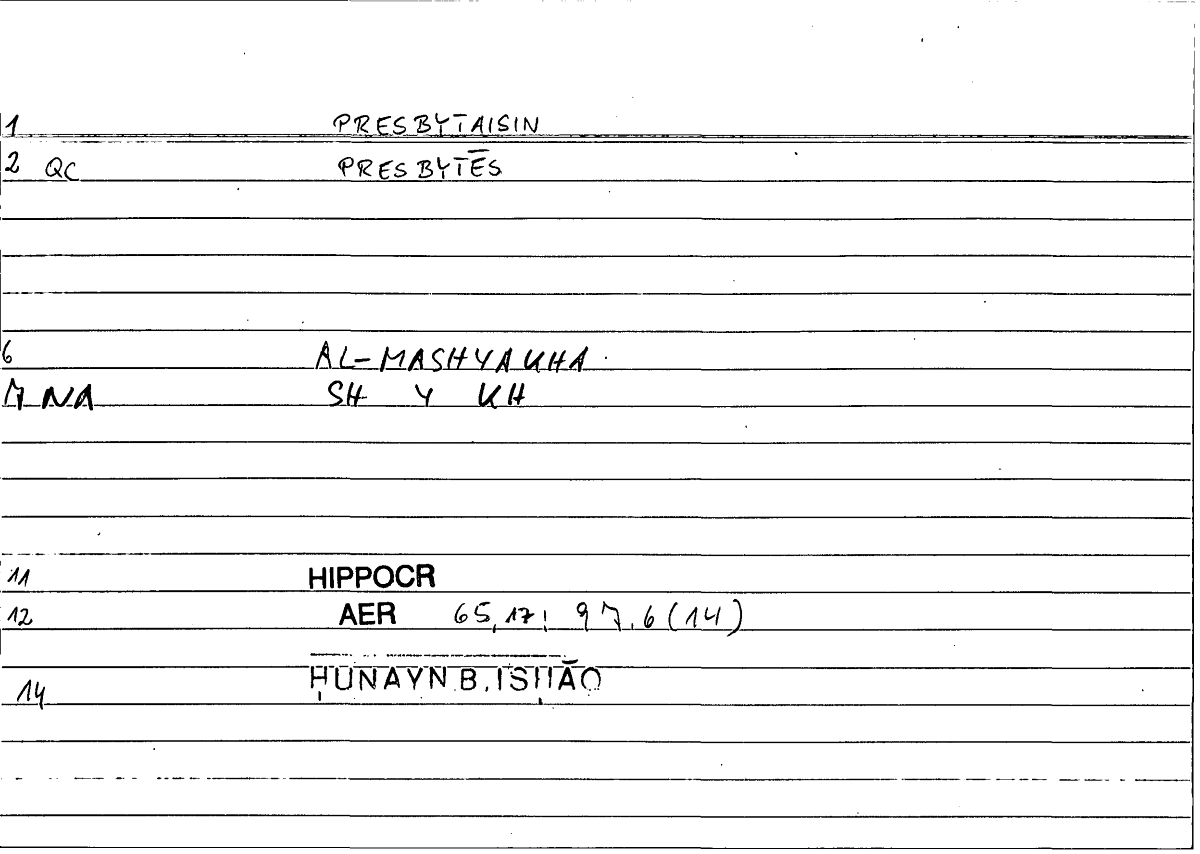 1 PRESBYTAISIN
2 QC PRESBYTĒS
6 AL-MASHYAKHA
7 NA SH Y KH
11 HIPPOCR
12 AER 65,17; 97,6 (14)
14 ḤUNAYN B. ISḤĀQ